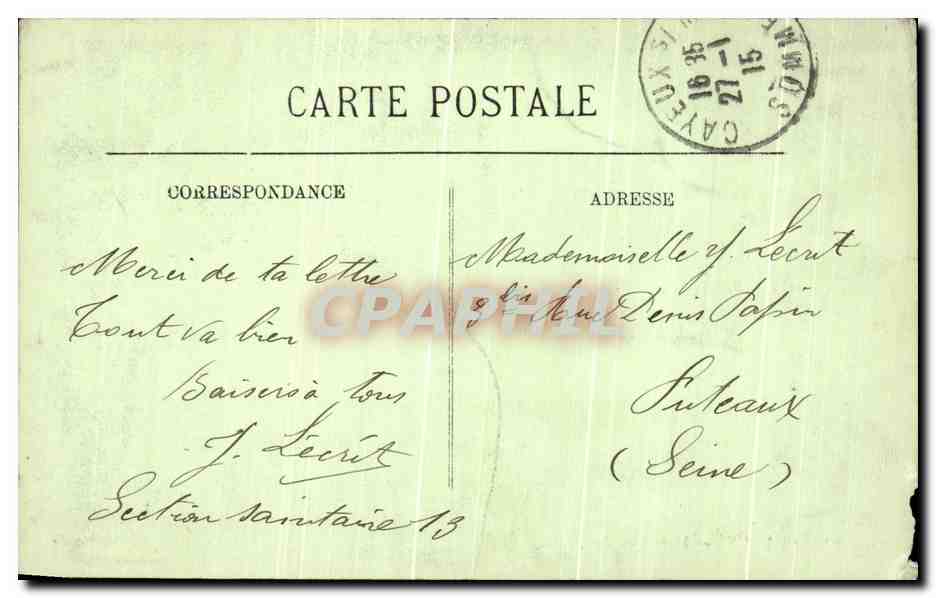 CARTE POSTALE
CAYEUX S/
SOMME
16 35
27 - 1
15
CORRESPONDANCE
Merci de ta lettre
Tout va bien
Baisers à tous
J. Lécrit
Section sanitaire 13
ADRESSE
Mademoiselle Y. Lécrit
bis Rue Denis Papin
Puteaux
(Seine)
CPAPHIL